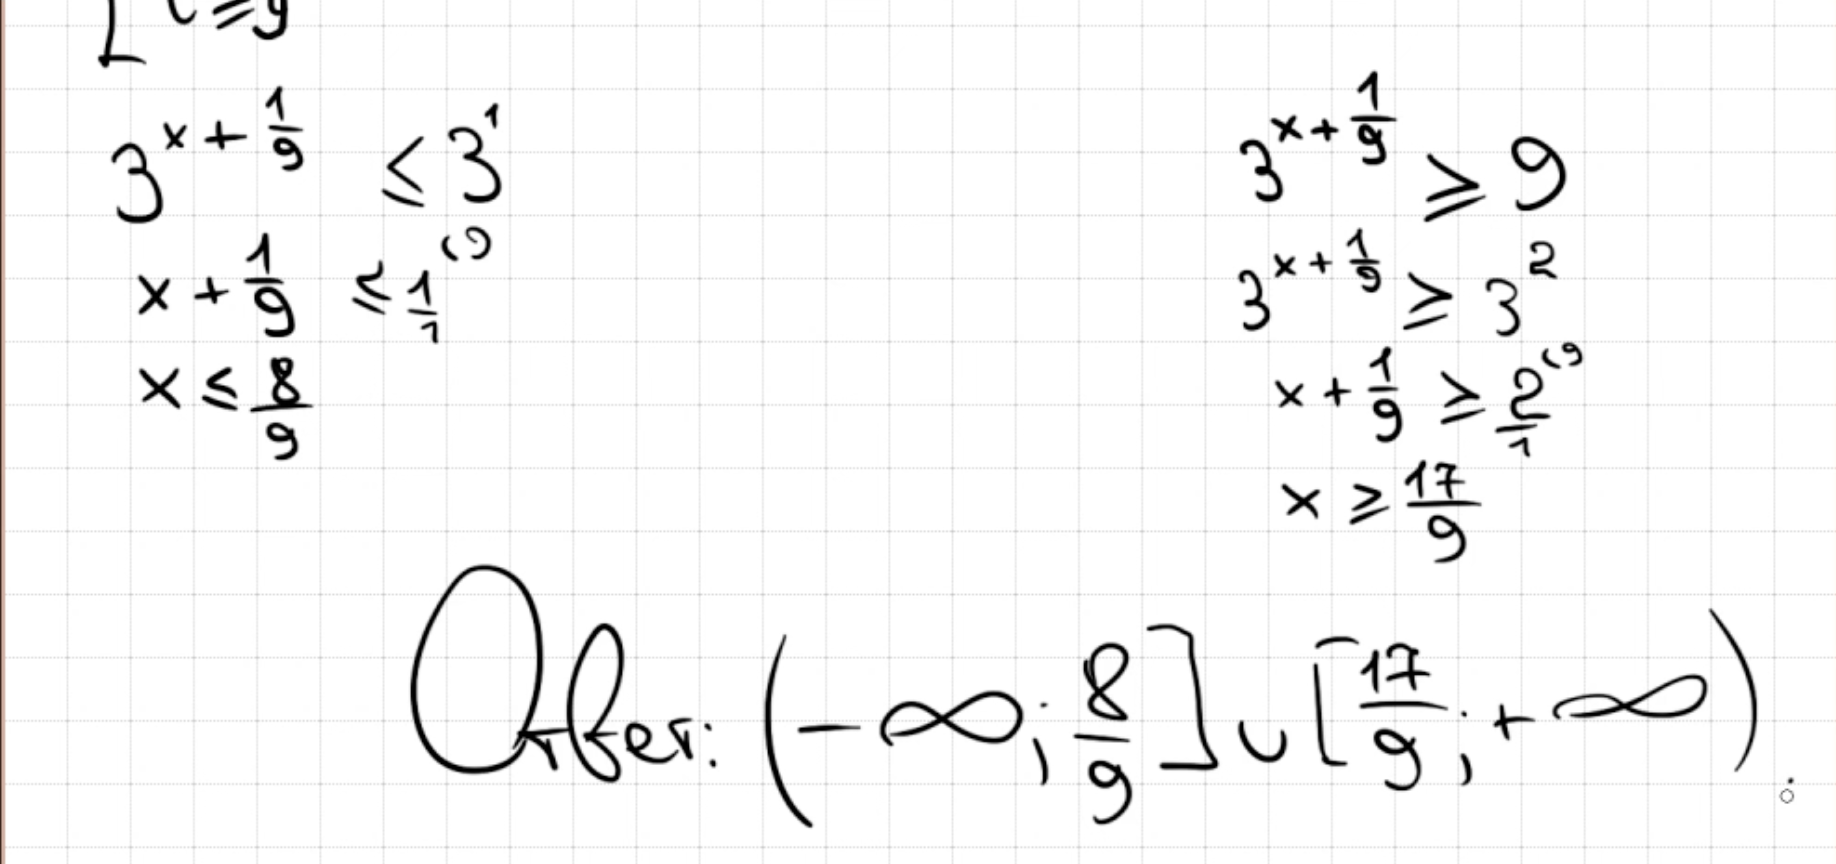 [ t ≥ 9
3^{x + \frac{1}{9}} ≤ 3^1
x + \frac{1}{9} ≤ \frac{1}{1}^{(9}
x ≤ \frac{8}{9}
3^{x + \frac{1}{9}} ≥ 9
3^{x + \frac{1}{9}} ≥ 3^2
x + \frac{1}{9} ≥ \frac{2}{1}^{(9}
x ≥ \frac{17}{9}
Ответ: (-∞; \frac{8}{9}] ∪ [\frac{17}{9}; +∞).